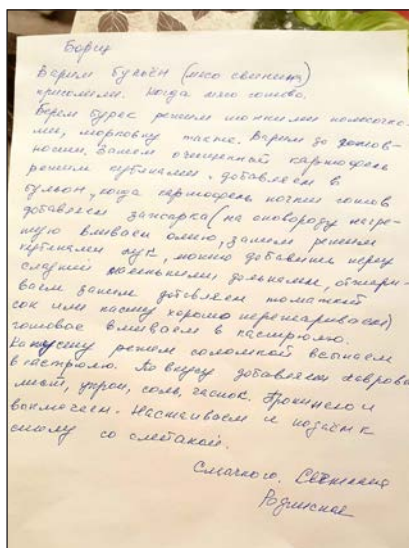 Борщ
Варим бульён (мясо свинина)
присолили. Когда мясо готово.
Берем бурак режим тонкими полосочка-
ми, морковку также. Варим до готов-
ности. Затем очищенный картофель
режим кубиками. добавляем в
бульон, когда картофель почти готов
добавляем зажарка (на сковороду нагре-
тую вливаем олию, затим режим
кубиками лук, можно добавить перец
сладкий маленькими дольками, обжари-
ваем затим добовляем томатный
сок или пасту хорошо пережариваем)
готовое вливаем в кастрюлю.
Капусту режем соломкой всыпаем
в кастрюлю. По вкусу добавляем лавровый
лист, укроп, соль, часнок. Прокипело и
выключаем. Настаиваем и подаём к
столу со сметаной.
Смачного. Светлана